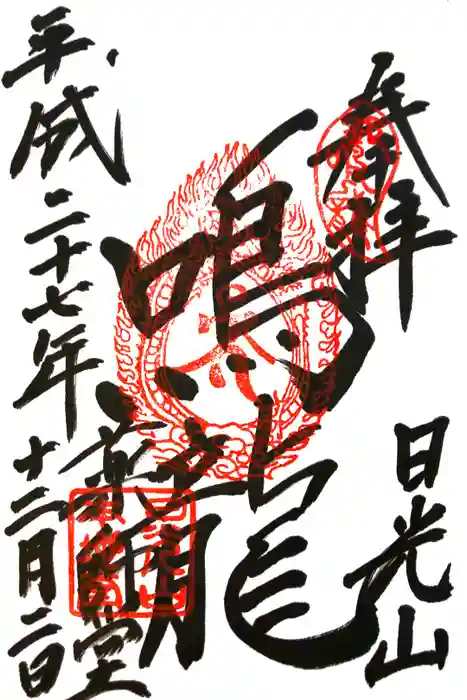 奉拝
日光山
鳴龍
薬師堂
平成二十七年
十二月二日